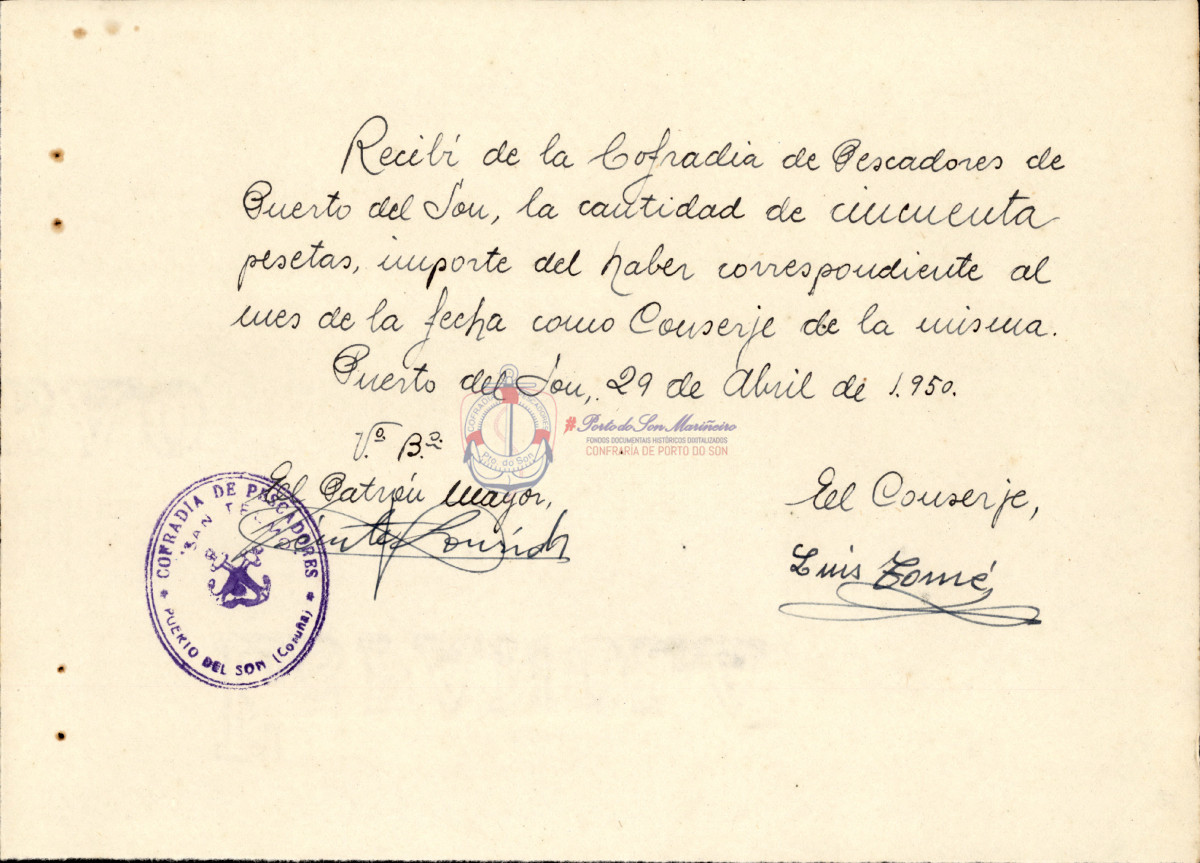 Recibí de la Cofradia de Pescadores de
Puerto del Son, la cantidad de cincuenta
pesetas, importe del haber correspondiente al
mes de la fecha como Conserje de la misma.
Puerto del Son, 29 de Abril de 1.950.
V.º B.º
El Patrón Mayor,
El Conserje,
Luis Tomé
COFRADIA DE PESCADORES
"SAN TELMO"
PUERTO DEL SON (Coruña)
COFRADÍA PESCADORES
Pto. do Son
#Porto do Son Mariñeiro
FONDOS DOCUMENTAIS HISTÓRICOS DIXITALIZADOS
CONFRARÍA DE PORTO DO SON